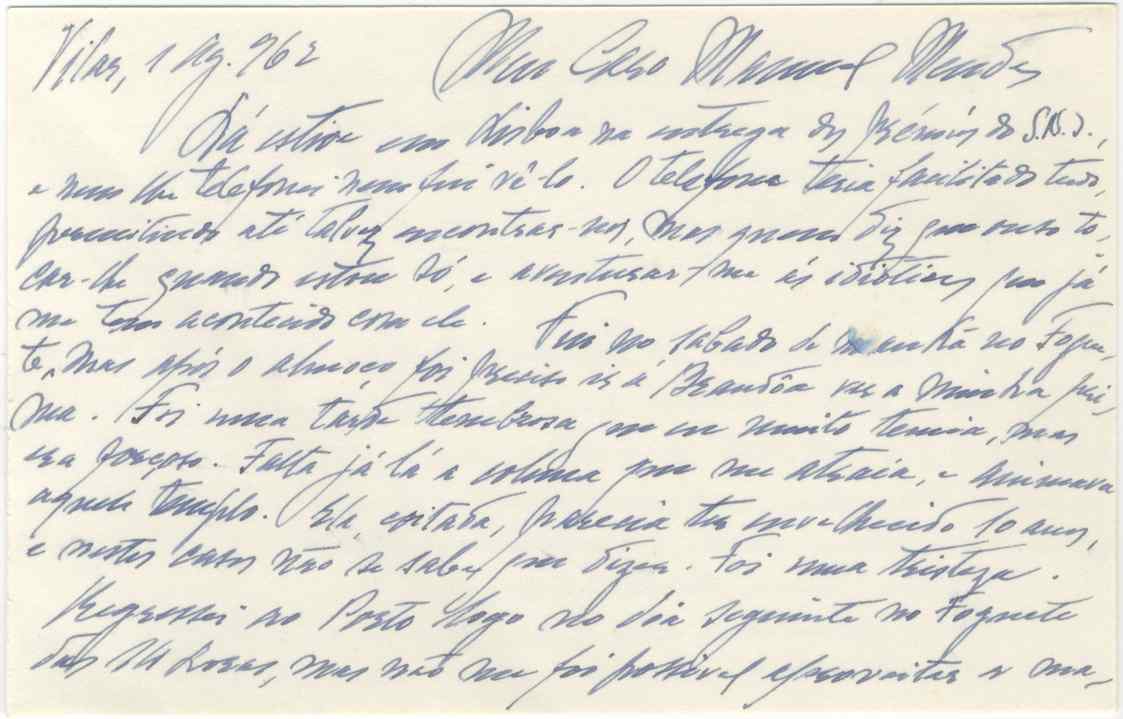 Vilar, 1 Ag. 962 Meu Caro Manuel Mendes
Lá estive em Lisboa na entrega dos Prémios do S.N.I.,
e nem lhe telefonei nem fui vê-lo. O telefone teria facilitado tudo,
permitindo até talvez encontrar-nos, mas quem diz que ouso to-
car-lhe quando estou só, e aventurar-me às idiotices que já
me tem acontecido com ele. Fui no sábado de manhã no Fogue-
te, mas após o almoço foi preciso ir à Brandôa ver a minha pri-
ma. Foi uma tarde tenebrosa que eu muito temia, mas
era forçoso. Falta já lá a coluna que me atraía, e animava
aquele templo. Ela, coitada, parecia ter envelhecido 10 anos,
e nestes casos não se sabe que dizer. Foi uma tristeza.
Regressei ao Porto logo no dia seguinte no Foguete
das 14 horas, mas não me foi possível aproveitar a ma-